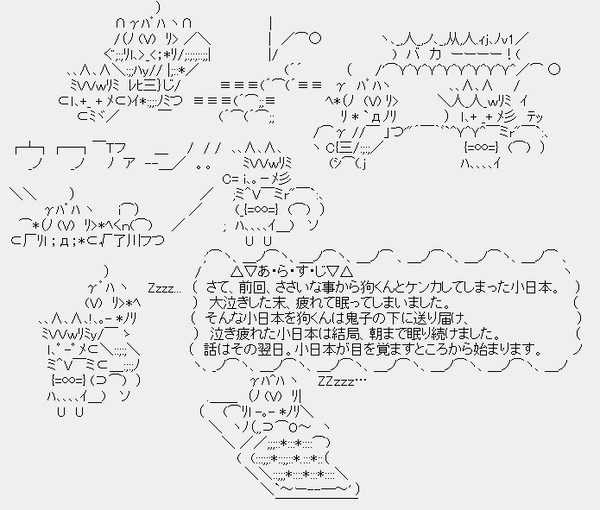 バカーーーー！
Zzzz...
△▽あ・ら・す・じ▽△
さて、前回、ささいな事から狗くんとケンカしてしまった小日本。
大泣きした末、疲れて眠ってしまいました。
そんな小日本を狗くんは鬼子の下に送り届け、
泣き疲れた小日本は結局、朝まで眠り続けました。
話はその翌日。小日本が目を覚ますところから始まります。
ZZzzz…